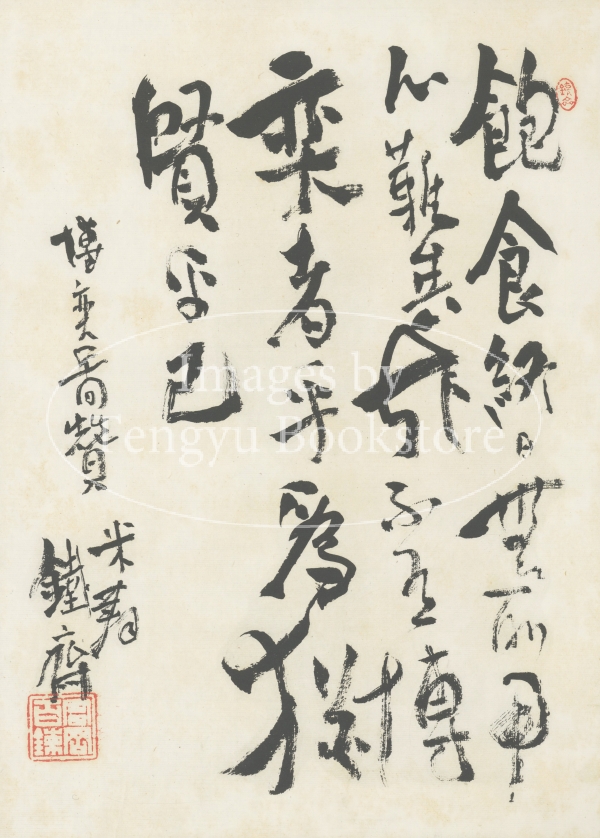 飽食終日無所用
心難矣哉不有博
奕者乎為猶
賢乎已
博奕者贊
米壽
鐵齋
Images by
Fengyu Bookstore